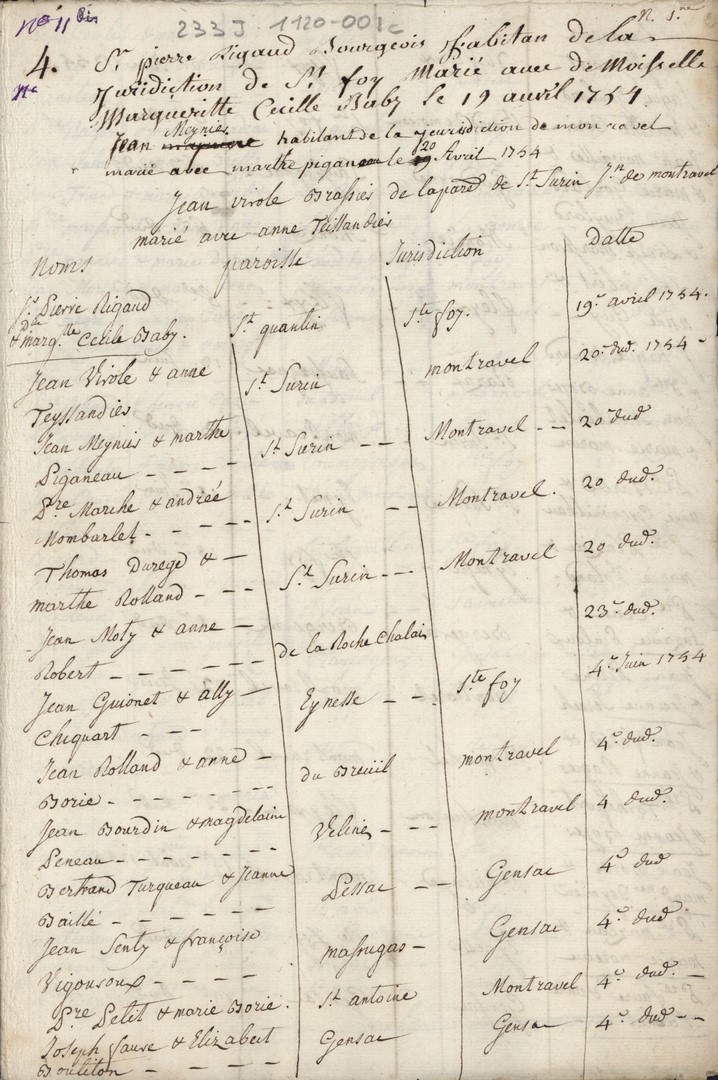 n° 11 bis
233 J 1120-001c
N. 1.re
4.
Sr. pierre Rigaud Bourgeois habitan de la
Juridiction de St. foy Marié avec demoiselle
Margueritte Cecille Baby le 19 avril 1754.
Meynies
Jean habitant de la jeurisdiction de monravel
20
marié avec marthe piganeau le Avril 1754
Jean virole Brassies de la paroe de St. Surin Jn. de montravel
marié avec anne Teissandies
Noms paroisse Jurisdiction Datte
Sr. Pierre Rigaud
& Dlle marq.tte Cecile Baby. St. quantin Ste foy. 19e avril 1754.
Jean Virole & anne St. Surin montravel 20e dud. 1754 -
Teyssandies
Jean Meynies & marthe St. Surin - - Montravel - - 20 dud
Piganeau - - - -
Pre. Marche & andrée St. Surin - - Montravel. 20 dud.
Mombarlet - - - - -
Thomas Durege & - St. Surin - - - Montravel 20 dud.
marthe Rolland - - -
Jean Moty & anne - de la Roche Chalais 23e dud.
Robert - - - - - -
Jean Guionet & ally - Eynesse - - - Ste foy 4e Juin 1754
Chiquart - - -
Jean Rolland & anne - du Breüil montravel 4e dud.
Borie - - - - - - -
Jean Bourdin & magdelaine Velines - - - montravel 4 dud.
Peneau - - - - - - -
Bertrand Turqueau & Jeanne Pessac - - Gensac 4e dud
Baillé - - - - - - -
Jean Senty & françoise massugas - Gensac 4e dud.
Vigouroux - - - - -
Pre. Petit & marie Borie. St. antoine Montravel 4e dud. -
Joseph fauve & Elizabeet Gensac Gensac 4e dud - -
Bouliton - - - - - -